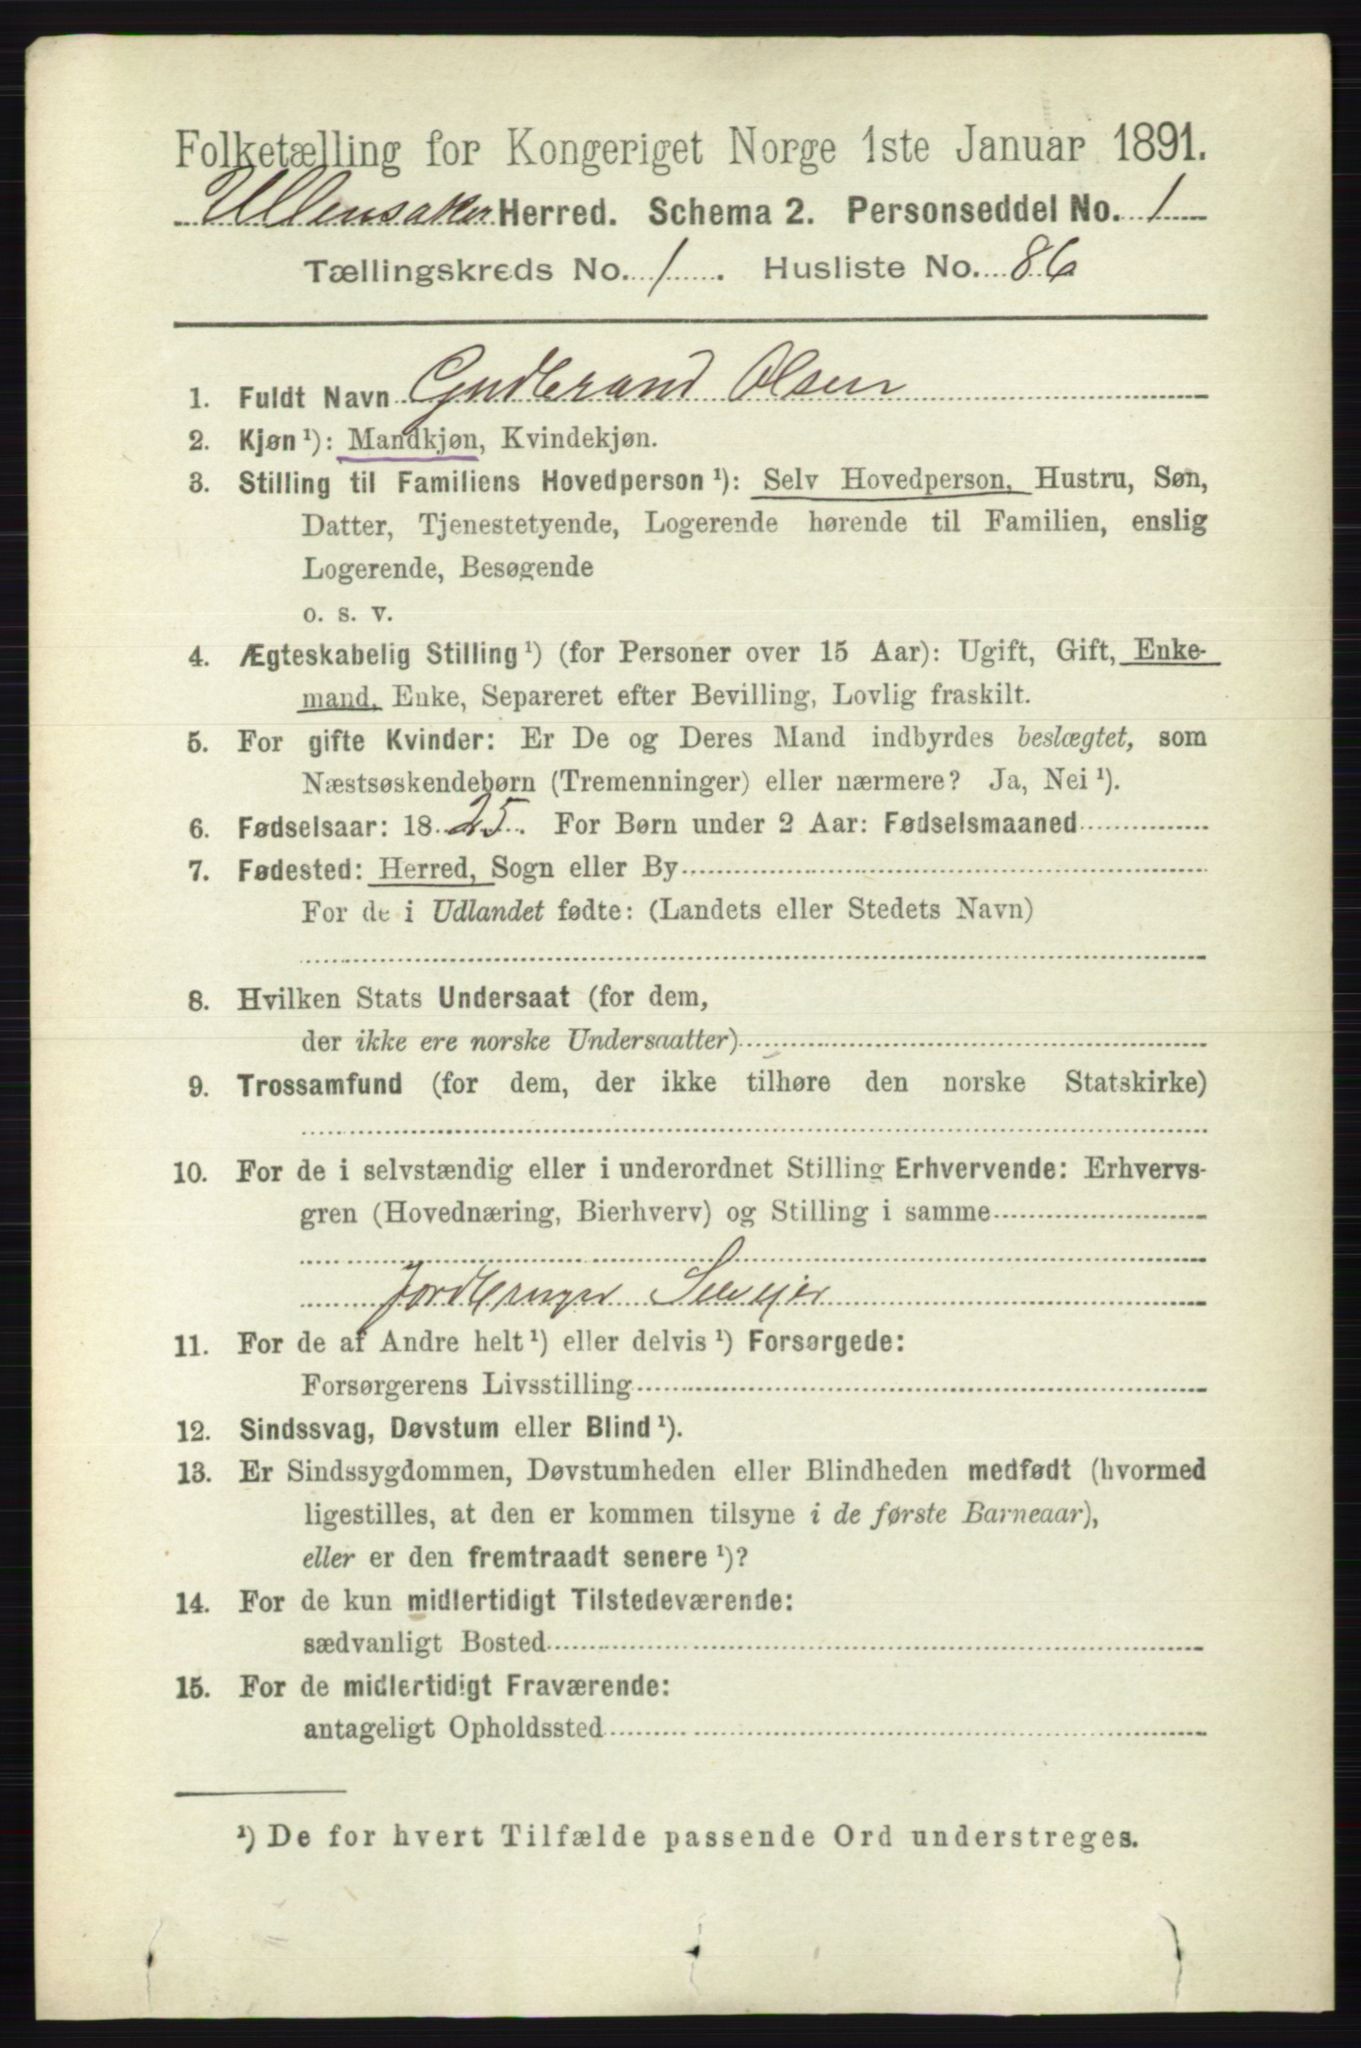 Folketælling for Kongeriget Norge 1ste Januar 1891.
Ullensaker Herred. Schema 2. Personseddel No. 1
Tællingskreds No. 1. Husliste No. 86
1. Fuldt Navn Gudbrand Olsen
2. Kjøn ¹): Mandkjøn, Kvindekjøn.
3. Stilling til Familiens Hovedperson ¹): Selv Hovedperson, Hustru, Søn,
Datter, Tjenestetyende, Logerende hørende til Familien, enslig
Logerende, Besøgende
o. s. v.
4. Ægteskabelig Stilling ¹) (for Personer over 15 Aar): Ugift, Gift, Enke-
mand, Enke, Separeret efter Bevilling, Lovlig fraskilt.
5. For gifte Kvinder: Er De og Deres Mand indbyrdes beslægtet, som
Næstsøskendebørn (Tremenninger) eller nærmere? Ja, Nei ¹).
6. Fødselsaar: 1825. For Børn under 2 Aar: Fødselsmaaned
7. Fødested: Herred, Sogn eller By
For de i Udlandet fødte: (Landets eller Stedets Navn)
8. Hvilken Stats Undersaat (for dem,
der ikke ere norske Undersaatter)
9. Trossamfund (for dem, der ikke tilhøre den norske Statskirke)
10. For de i selvstændig eller i underordnet Stilling Erhvervende: Erhvervs-
gren (Hovednæring, Bierhverv) og Stilling i samme
Jordbruger Selvejer
11. For de af Andre helt ¹) eller delvis ¹) Forsørgede:
Forsørgerens Livsstilling
12. Sindssvag, Døvstum eller Blind ¹).
13. Er Sindssygdommen, Døvstumheden eller Blindheden medfødt (hvormed
ligestilles, at den er kommen tilsyne i de første Barneaar),
eller er den fremtraadt senere ¹)?
14. For de kun midlertidigt Tilstedeværende:
sædvanligt Bosted
15. For de midlertidigt Fraværende:
antageligt Opholdssted
¹) De for hvert Tilfælde passende Ord understreges.